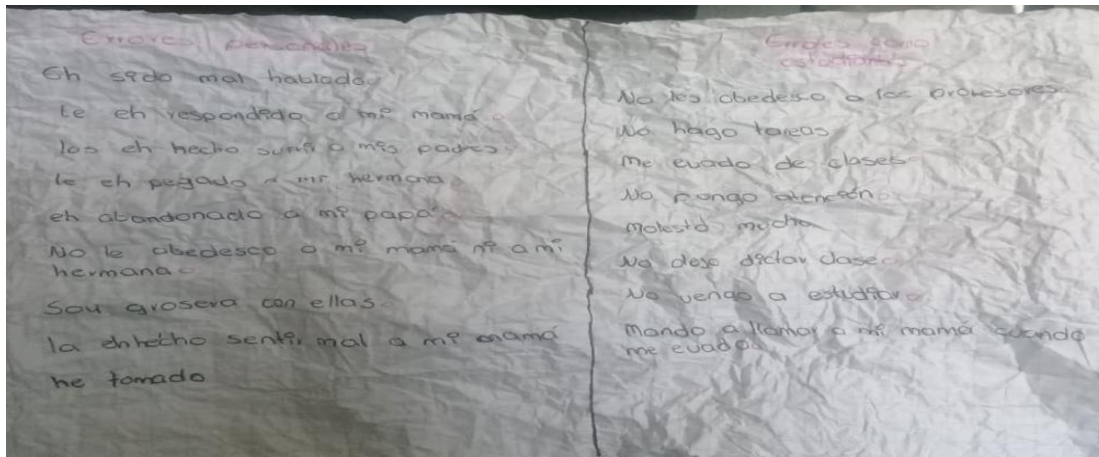 Errores personales
Eh sido mal hablada.
Le eh respondido a mi mamá.
los eh hecho sufrir a mis padres.
le eh pegado a mi hermana.
eh abandonado a mi papá.
No le obedesco a mi mamá ni a mi
hermana.
Soy grosera con ellas.
la eh hecho sentir mal a mi mamá
he tomado
Errores como
estudiante
No les obedesco a los profesores.
No hago tareas
me evado de clases.
No pongo atención.
molesto mucho
No dejo dictar clase.
No vengo a estudiar.
Mando a llamar a mi mamá cuando
me evado.